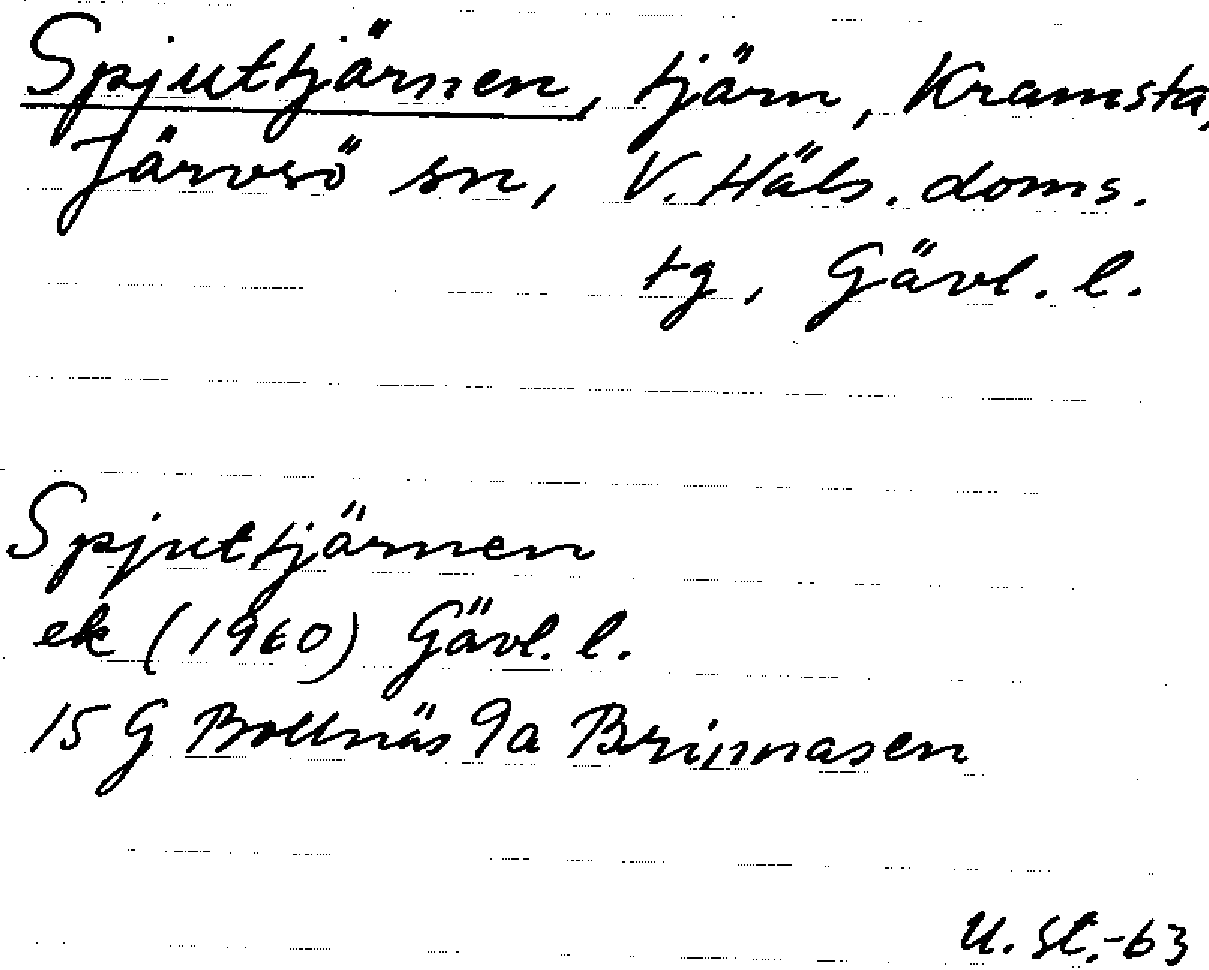 Spjuttjärnen, tjärn, Kramsta,
Järvsö sn, V. Häls. doms.
tg, Gävl. l.
Spjuttjärnen
ek (1960) Gävl. l.
15 G Bollnäs 9a Brinnasen
U. St.-63